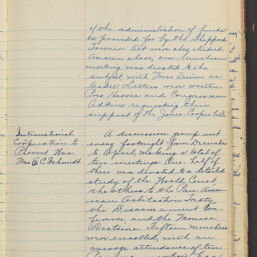 of the administration of funds
as provided for by the Sheppard
Towner Act was also studied
One luncheon
meeting was devoted to the
subject with Mrs. as
leader. Letters were written
and Congressman
requesting their
support of the Jones-Cooper bill.
International
Cooperation to
Prevent War
Mrs E C Schmidt
A discussion group met
every fortnight from December
to April, making a total of
ten meetings. One half of
these was devoted to a detailed
study of the World Court,
the others to the Pan Amer-
ican Arbitration Treaty
the Disarmament Con-
ference and the Monroe
Doctrine. Fifteen members
were enrolled with an
average attendance of ten